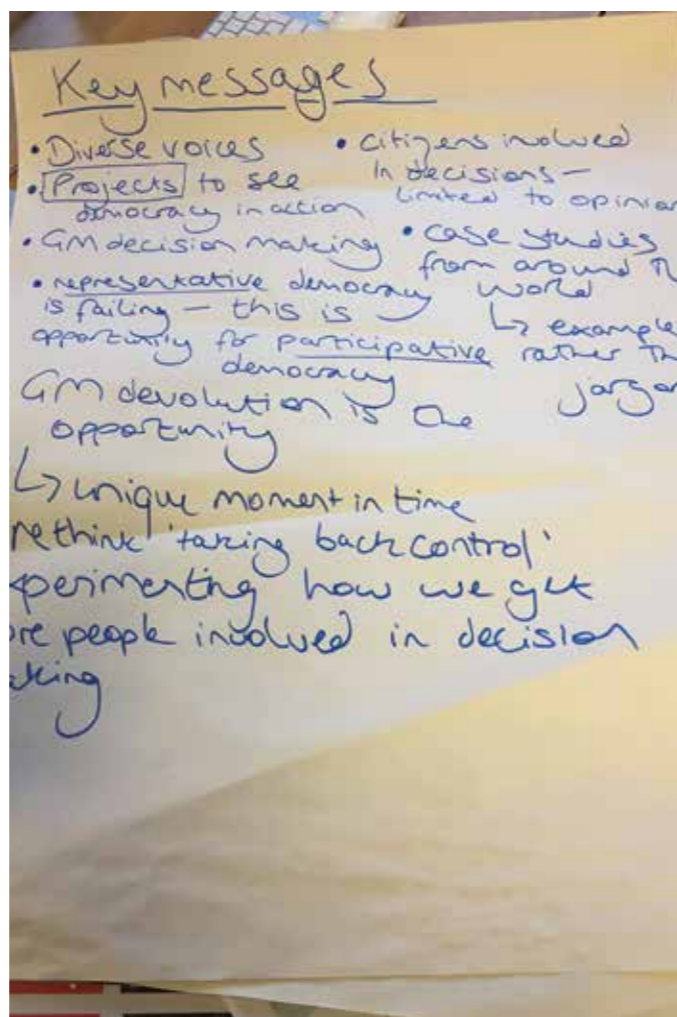 Key messages
• Diverse voices
• Projects to see
democracy in action
• GM decision making
• representative democracy
is failing – this is
opportunity for participative
democracy
GM devolution is the
opportunity
↳ unique moment in time
rethink 'taking back control'
xperimenting how we get
re people involved in decision
king
• citizens involved
in decisions –
limited to opinion
• case studies
from around th
world
↳ example
rather th
jargon